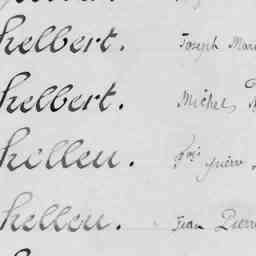 helbert. Joseph Mar
helbert. Michel,
helleu.
helleu. Jean Pierre